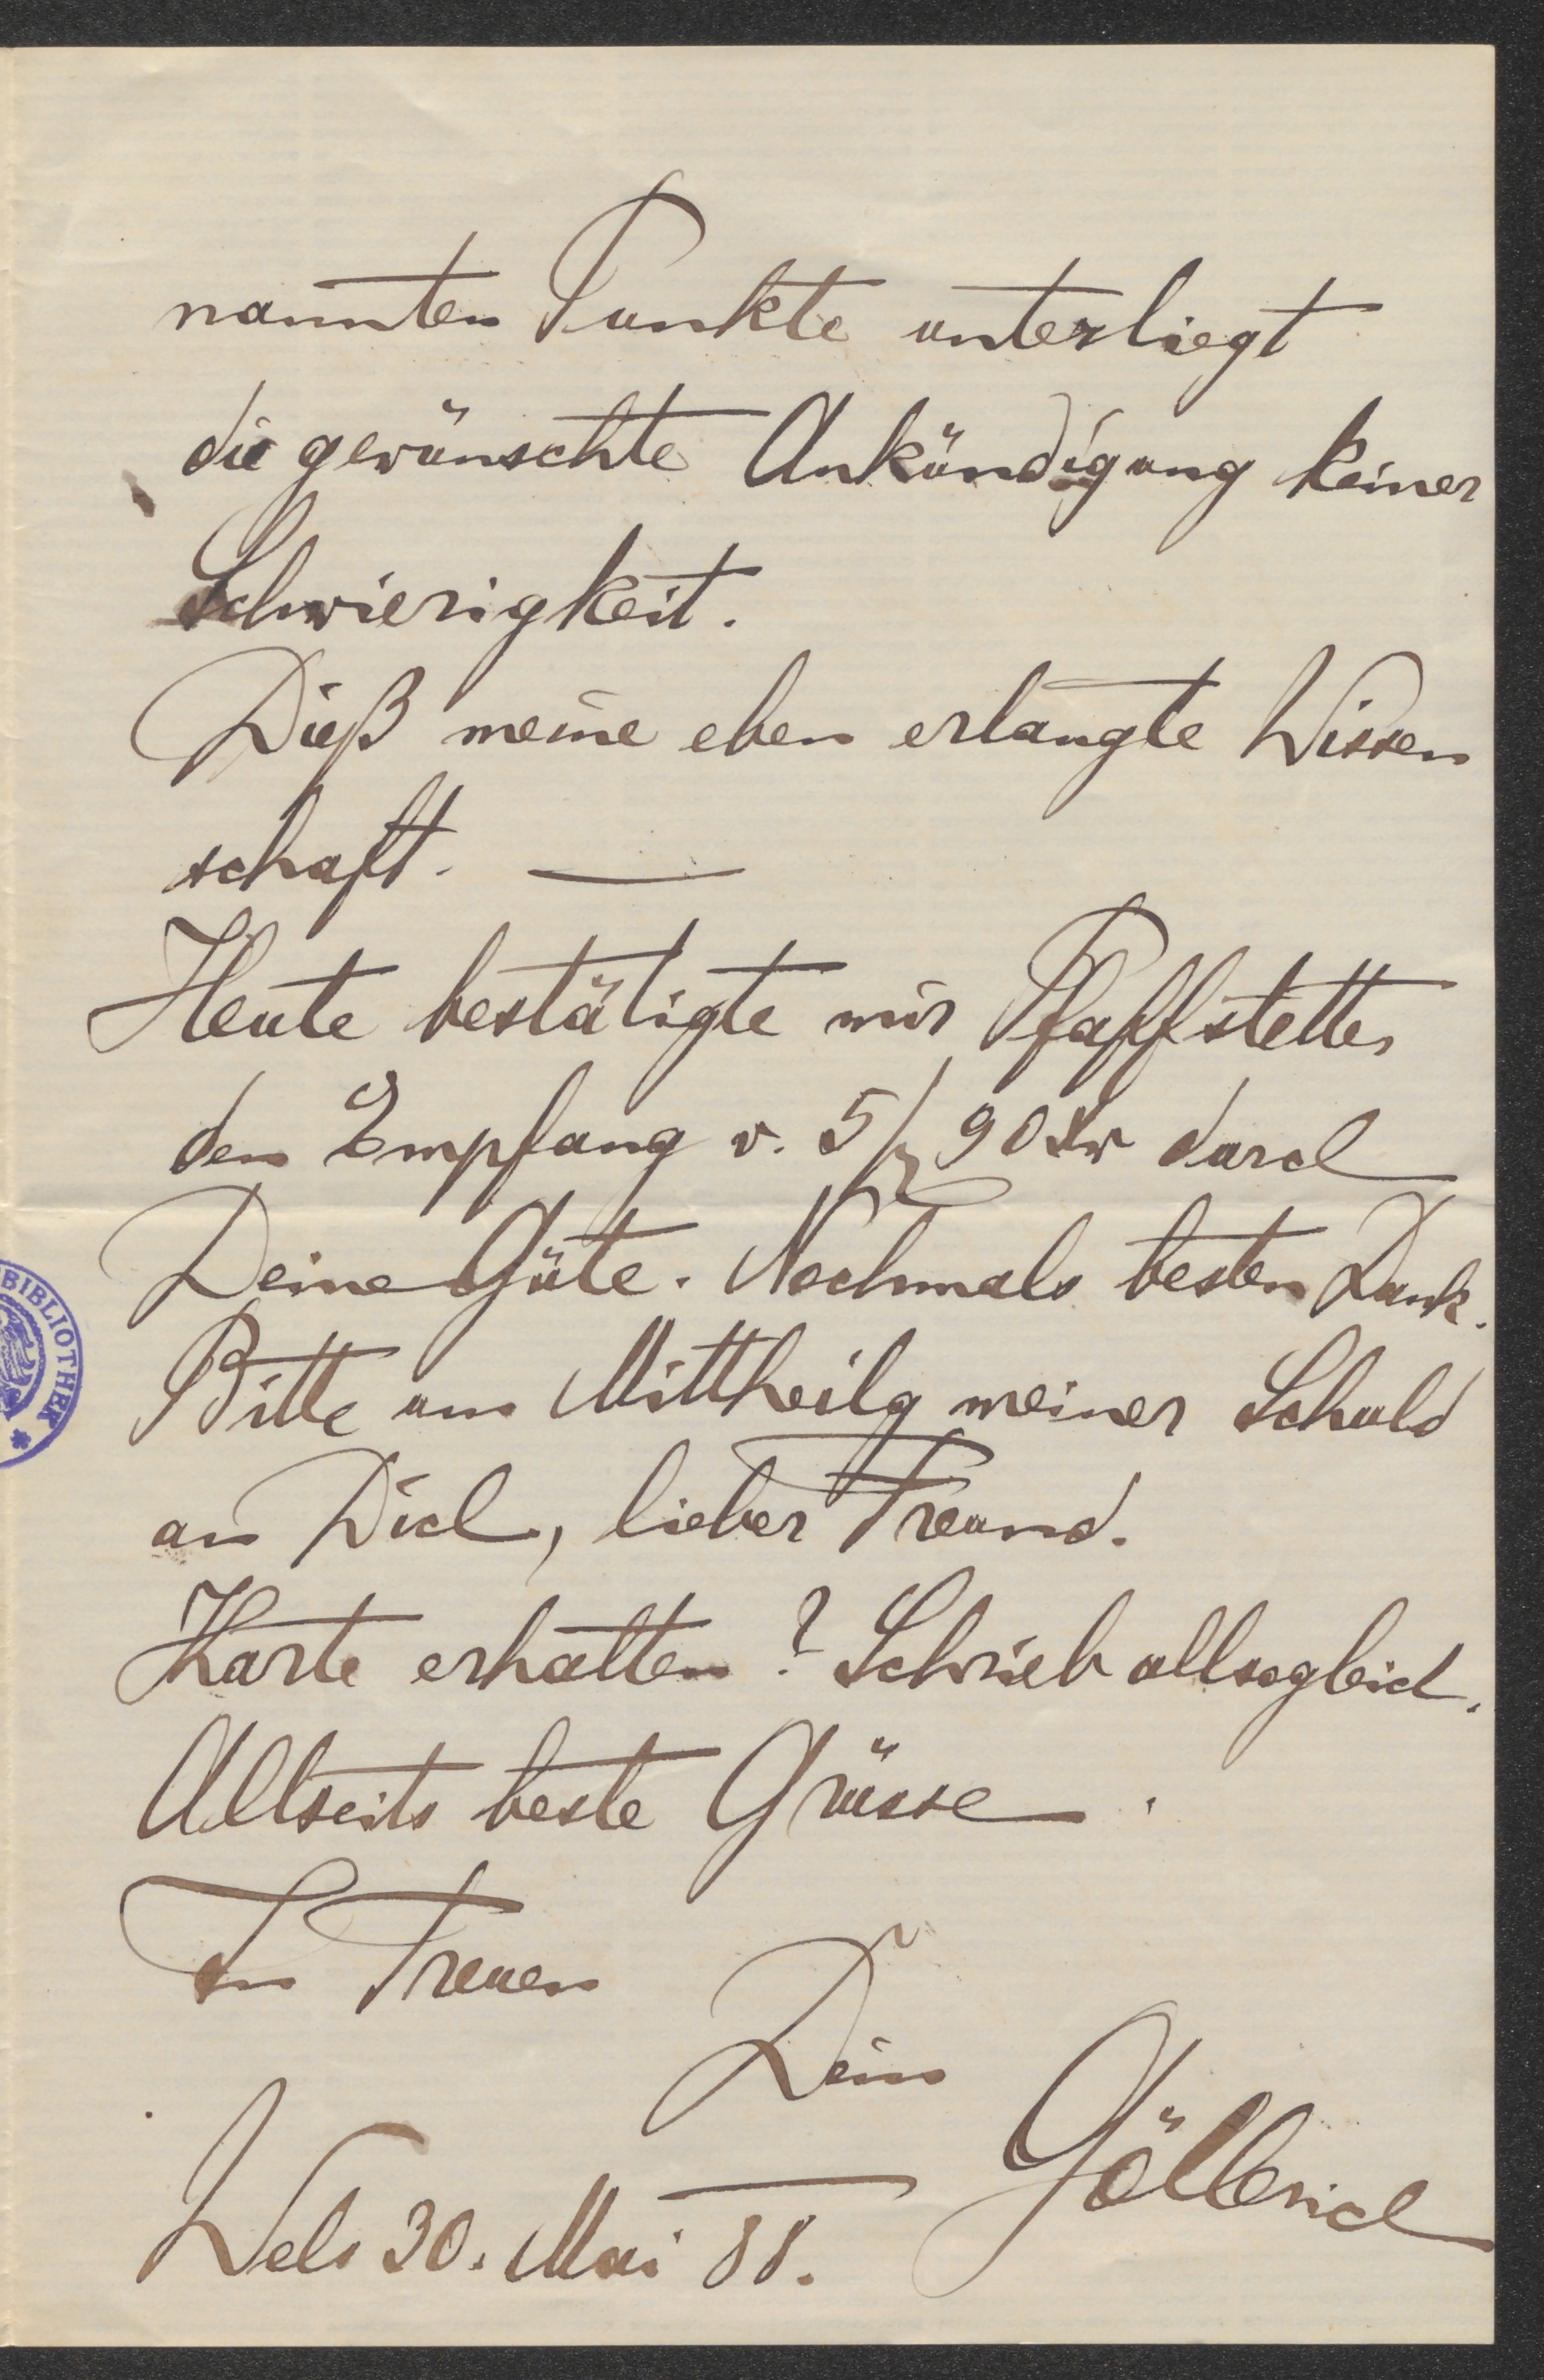 nannten Punkte unterliegt
die gewünschte Ankündigung keiner
Schwierigkeit.
Dieß meine eben erlangte Wissen
schaft. —
Heute bestätigte mir Pfaffstetter
den Empfang v. 5 f 90 Kr durch
Deine Güte. Nochmals besten Dank.
Bitte um Mittheilg meiner Schuld
an Dich, lieber Freund.
Karte erhalten? Schrieb allsogleich.
Allseits beste Grüsse.
In Treuen
Dein
Göllerich
Wels 30. Mai 88.
BIBLIOTHEK